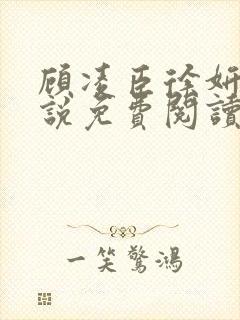 顾凌臣徐妍
說免費閱讀
一笑驚鴻